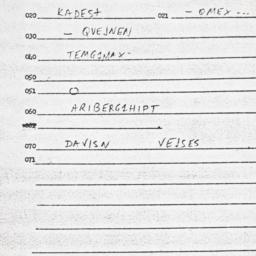 020 KADEST 021 - OMEX ...
030 - QVEJNEN
040 TEMGIMAX-
050
051 O
060 ARIBERG1HIPT
070 DAVISN VEJSES
071